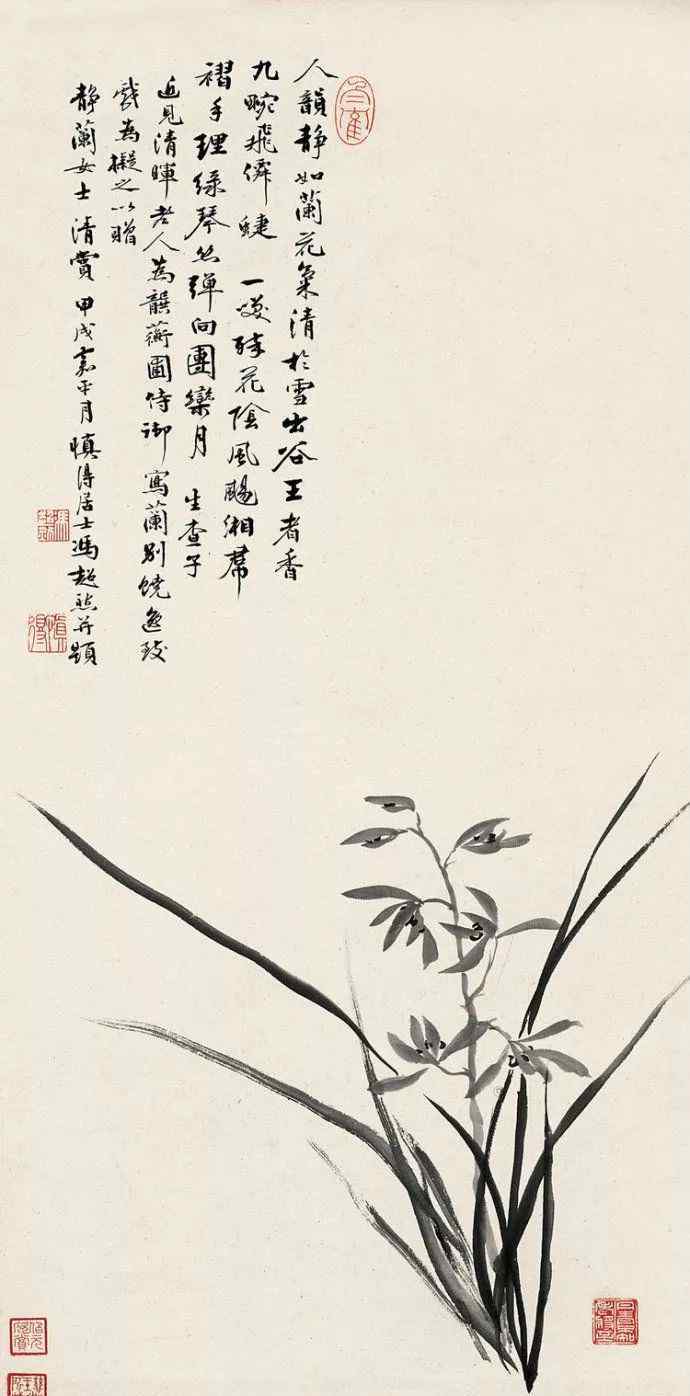 人韻静如蘭花氣清於雪出谷王者香
九畹飛僊蜨 一花陰風颺湘帬
褶手理緑琴絲彈向團欒月 生查子
近見清暉老人為龔蘅圃侍御寫蘭別饒逸致
戲為擬之以贈
静蘭女士清賞 甲戌嘉平月慎得居士馮超然并題